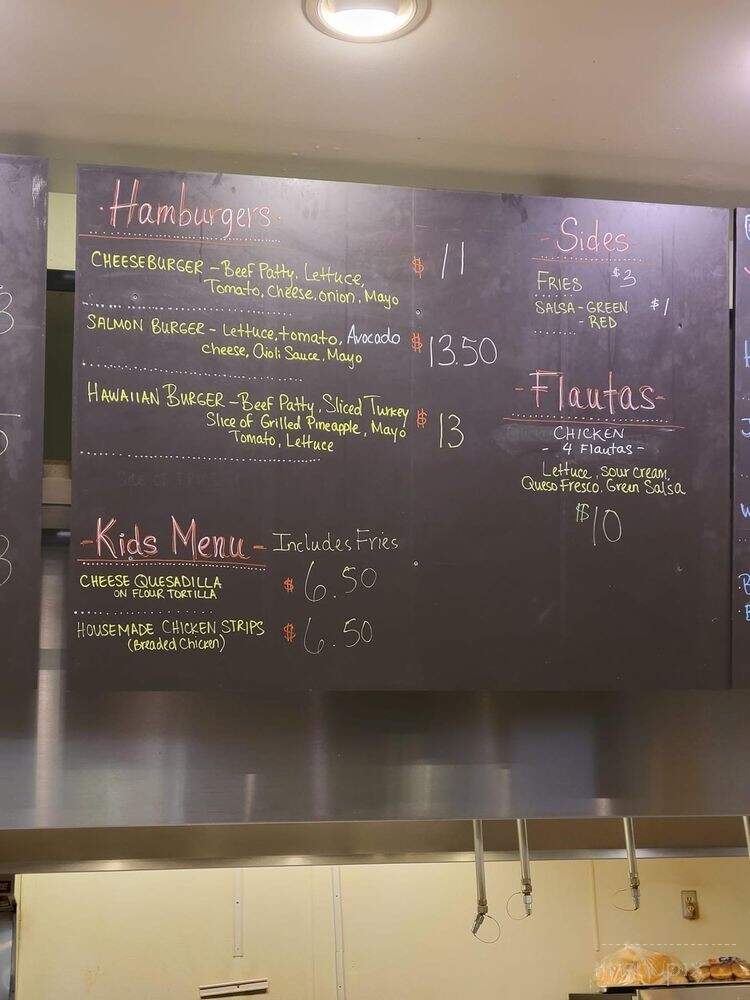 ·Hamburgers·
CHEESEBURGER - Beef Patty, Lettuce, $ 11
Tomato, Cheese, onion, Mayo
SALMON BURGER - Lettuce, tomato, Avocado $ 13.50
cheese, Aioli Sauce, Mayo
HAWAIIAN BURGER - Beef Patty, Sliced Turkey $ 13
Slice of Grilled Pineapple, Mayo
Tomato, Lettuce
-Kids Menu- Includes Fries
CHEESE QUESADILLA $ 6.50
ON FLOUR TORTILLA
HOUSEMADE CHICKEN STRIPS $ 6.50
(Breaded Chicken)
-Sides
FRIES $3
SALSA - GREEN $1
- RED
-Flautas-
CHICKEN
- 4 Flautas -
Lettuce, sour cream,
Queso Fresco, Green Salsa
$10